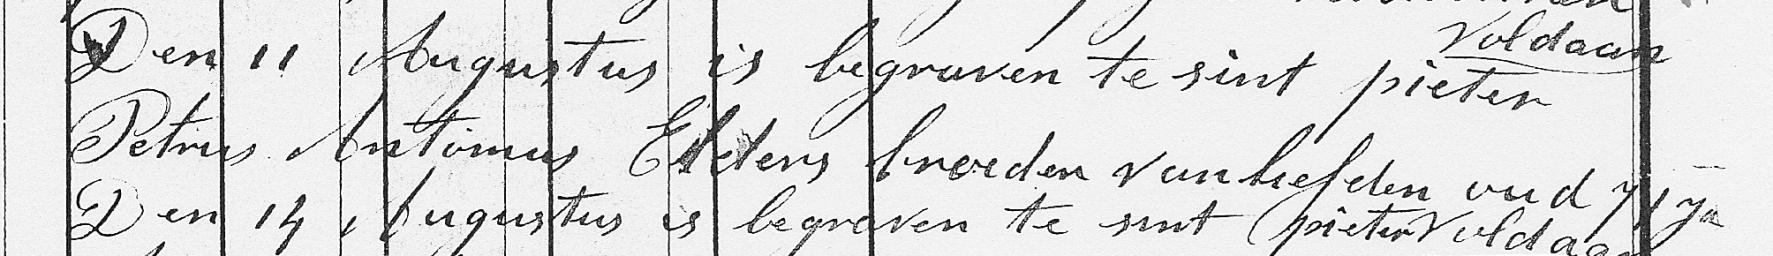 Voldaan
Den 11 Augustus is begraven te sint pieter
Petrus Antonius Elders broeder van liefden oud 71 ja
Den 14 Augustus is begraven te sint pieter Voldaan